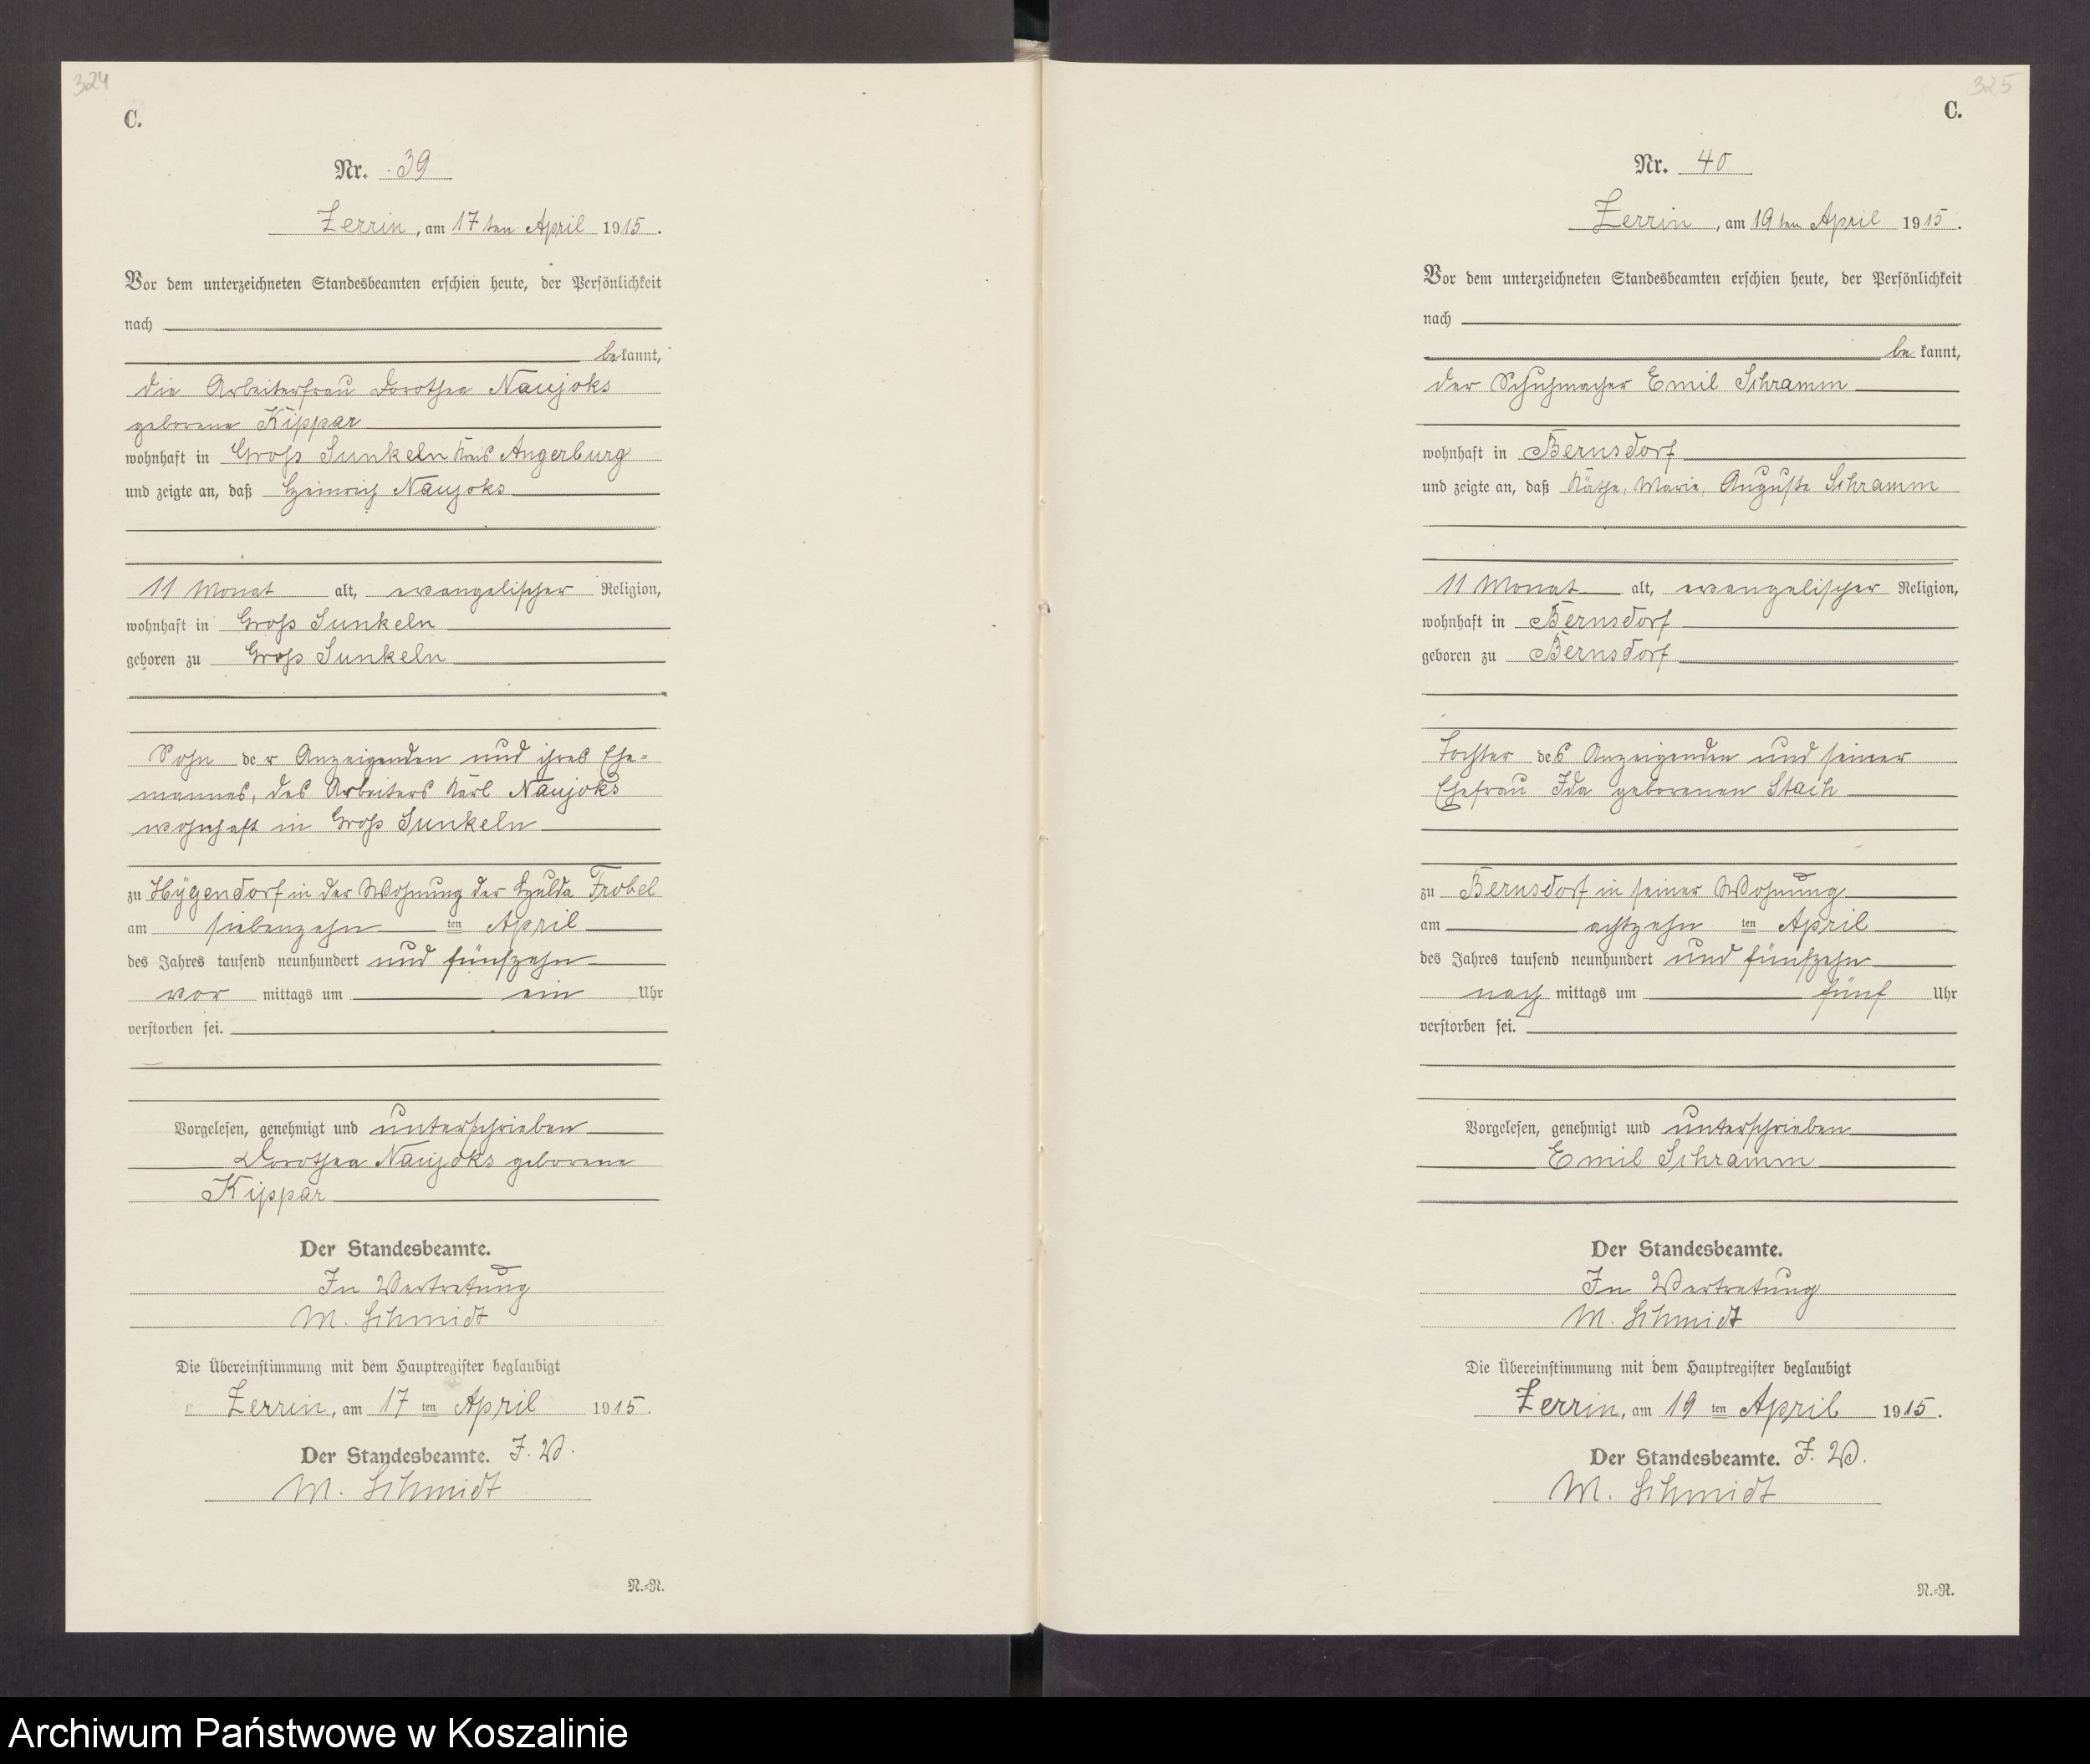 324
C.
Nr. 39
Zerrin, am 17ten April 1915.
Vor dem unterzeichneten Standesbeamten erschien heute, der Persönlichkeit
nach
bekannt,
die Arbeiterfrau Dorothea Naujoks
geborene Kippar
wohnhaft in Groß Sunkeln Kreis Angerburg
und zeigte an, daß Heinrich Naujoks
11 Monat alt, evangelischer Religion,
wohnhaft in Groß Sunkeln
geboren zu Groß Sunkeln
Sohn der Anzeigenden und ihres Ehe-
mannes, des Arbeiters Karl Naujoks
wohnhaft in Groß Sunkeln
zu Hygendorf in der Wohnung der Hulda Frobel
am siebenzehn ten April
des Jahres tausend neunhundert und fünfzehn
vor mittags um ein Uhr
verstorben sei.
Vorgelesen, genehmigt und unterschrieben
Dorothea Naujoks geborene
Kippar
Der Standesbeamte.
In Vertretung
M. Schmidt
Die Übereinstimmung mit dem Hauptregister beglaubigt
Zerrin, am 17 ten April 1915.
Der Standesbeamte. J. V.
M. Schmidt
N.=N.
325
C.
Nr. 40
Zerrin, am 19ten April 1915.
Vor dem unterzeichneten Standesbeamten erschien heute, der Persönlichkeit
nach
be kannt,
der Schuhmacher Emil Schramm
wohnhaft in Bernsdorf
und zeigte an, daß Käthe, Marie, Auguste Schramm
11 Monat alt, evangelischer Religion,
wohnhaft in Bernsdorf
geboren zu Bernsdorf
Tochter des Anzeigenden und seiner
Ehefrau Ida geborenen Stach
zu Bernsdorf in seiner Wohnung
am achtzehn ten April
des Jahres tausend neunhundert und fünfzehn
nach mittags um fünf Uhr
verstorben sei.
Vorgelesen, genehmigt und unterschrieben
Emil Schramm
Der Standesbeamte.
In Vertretung
M. Schmidt
Die Übereinstimmung mit dem Hauptregister beglaubigt
Zerrin, am 19 ten April 1915.
Der Standesbeamte. J. V.
M. Schmidt
N.=N.
Archiwum Państwowe w Koszalinie